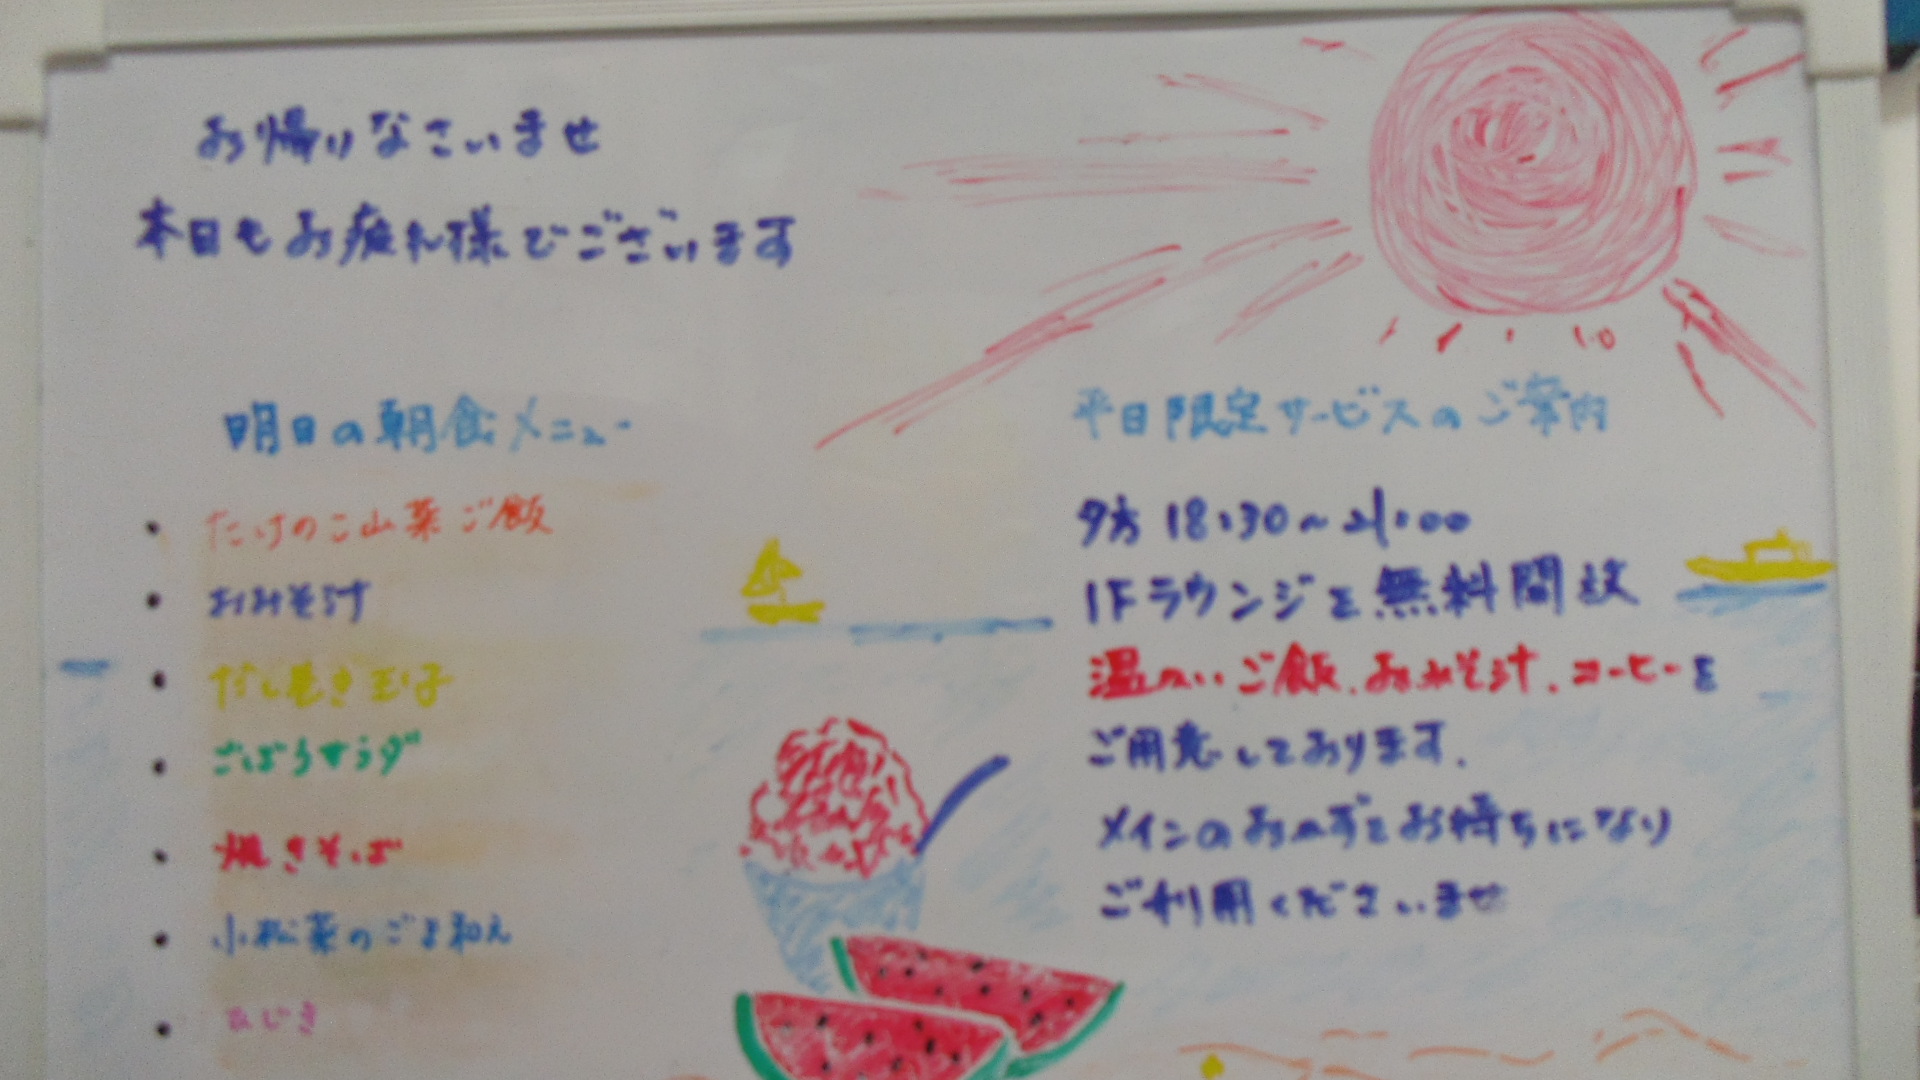 お帰りなさいませ
本日もお疲れ様でございます
明日の朝食メニュー
・たけのこ山菜ご飯
・おみそ汁
・だし巻き玉子
・ごぼうサラダ
・焼きそば
・小松菜のごま和え
・ひじき
平日限定サービスのご案内
夕方 18:30～21:00
1Fラウンジを無料開放
温かいご飯、おみそ汁、コーヒーを
ご用意しております。
メインのおかずをお持ちになり
ご利用くださいませ